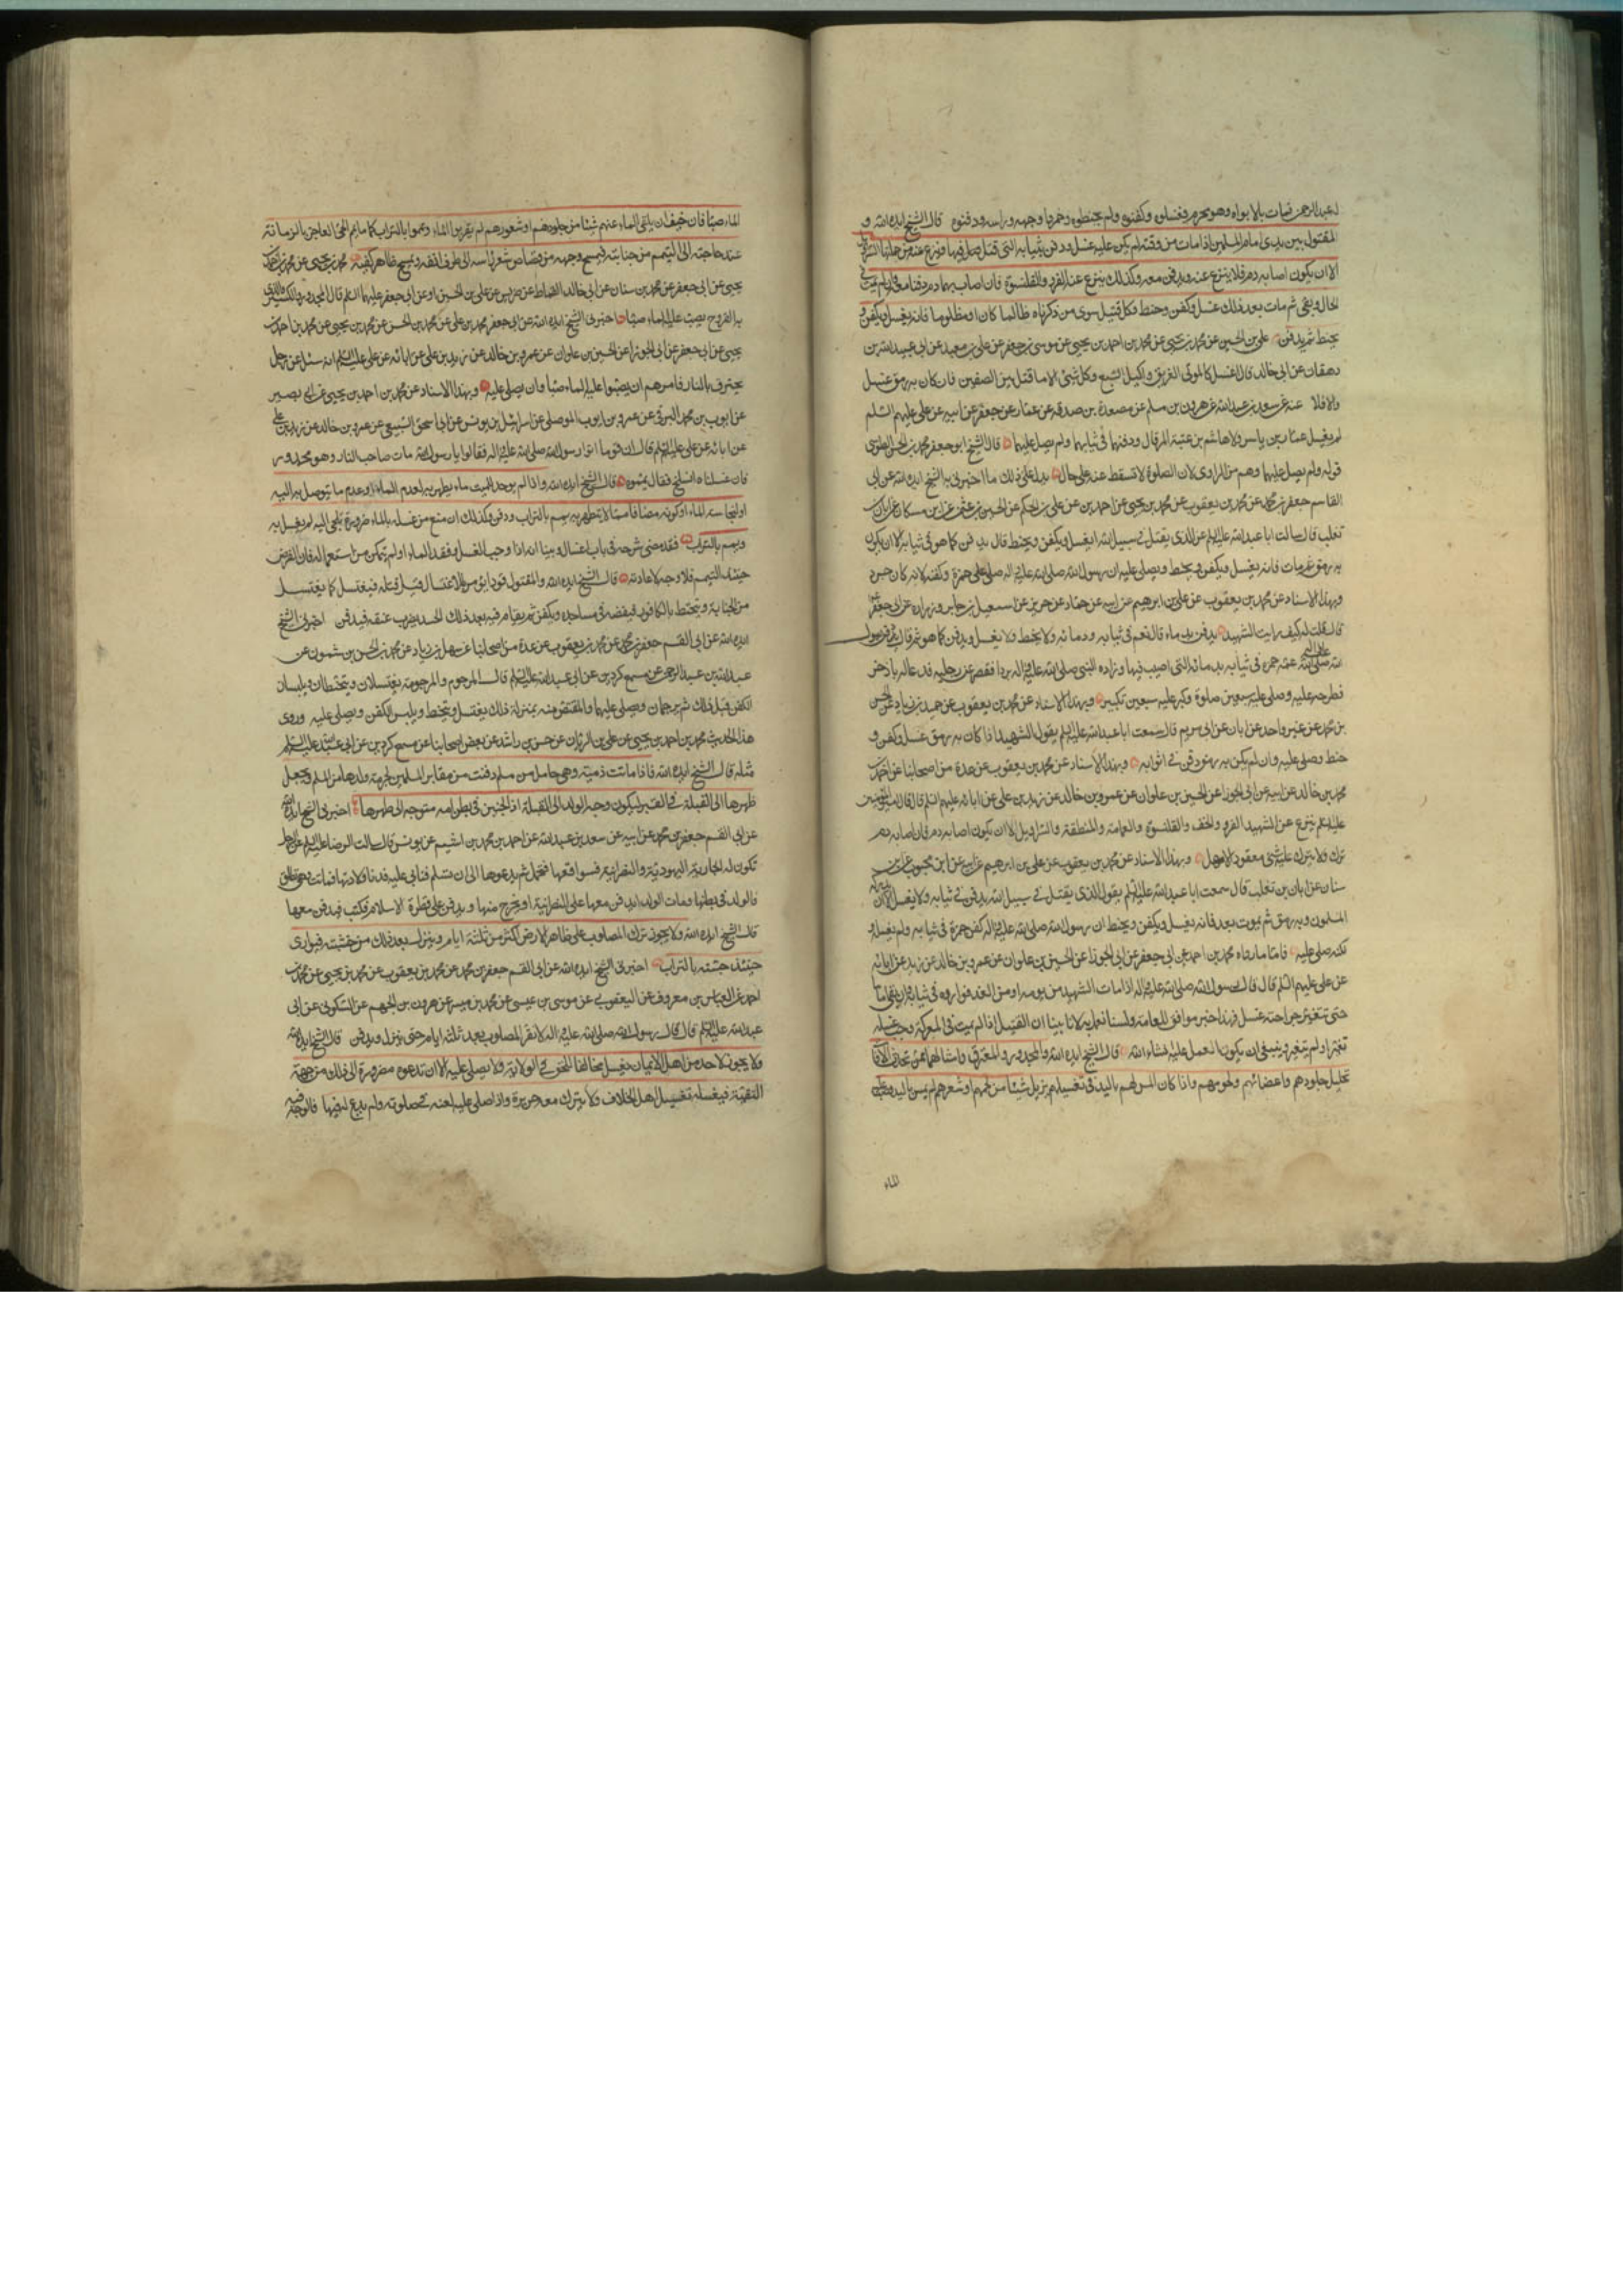 لعبد الرحمن فمات بالابواء وهو محرم فغسلوه وكفنوه ولم يحنطوه وخمروا وجهه وراسه ودفنوه قال الشيخ ايده الله و
المقتول بين يدي امام المسلمين اذا مات من وقته لم يكن عليه غسل ودفن بثيابه التي قتل فيها وينزع عنه من جملتها السراويل
الا ان يكون اصابه دم فلا ينزع عنه ويدفن معه وكذلك ينزع عنه الفرو والقلنسوة فان اصابهما دم دفنا معه وان لم يمت في
الحال وبقي ثم مات بعد ذلك غسل وكفن وحنط وكل قتيل سوى من ذكرناه ظالما كان او مظلوما فانه يغسل ويكفن و
يحنط ثم يدفن علي بن الحسين عن محمد بن يحيى عن محمد بن احمد بن يحيى عن موسى بن جعفر عن علي بن سعيد عن ابي عبيد الله بن
دهقان عن ابي خالد قال اغسل كل الموتى الغريق واكيل السبع وكل شيء الا ما قتل بين الصفين فان كان به رمق غسل
والا فلا عنه عن سعد بن عبد الله عن هرون بن مسلم عن مصعدة بن صدقه عن عمار عن جعفر عن ابيه عن علي عليهم السلم
لم يغسل عمار بن ياسر ولا هاشم بن عتبة المرقال ودفنهما في ثيابهما ولم يصل عليهما قال الشيخ ابو جعفر محمد بن الحسن الطوسي
قوله ولم يصل عليهما وهم من الراوي لان الصلوة لا تسقط عنه على حال يدل على ذلك ما اخبرني به الشيخ ايده الله عن ابي
القاسم جعفر بن محمد عن محمد بن يعقوب عن محمد بن يحيى عن احمد بن عن علي بن الحكم عن الحسين بن عثمن عن ابن مسكان عن ابان بن
تغلب قال سالت ابا عبد الله عليه السلم عن الذي يقتل في سبيل الله ايغسل ويكفن ويحنط قال يدفن كما هو في ثيابه الا ان يكون
به رمق ثم مات فانه يغسل ويكفن ويحنط ويصلى عليه ان رسول الله صلى الله عليه واله صلى على حمزة وكفنه لانه كان جرد
وبهذا الاسناد عن محمد بن يعقوب عن علي بن ابرهيم عن ابيه عن حماد عن حريز عن اسمعيل بن جابر وزراره عن ابي جعفر
قال قلت له كيف رايت الشهيد يدفن بدماءه قال نعم في ثيابه ودمائه ولا يحنط ولا يغسل ويدفن كما هو ثم قال دفن رسول
الله صلى الله عليه واله عمه حمزه في ثيابه بدمائه التي اصيب فيها وزاده النبي صلى الله عليه واله بردا فقصر عن رجليه فدعا له باذخر
فطرحه عليه وصلى عليه سبعين صلوة وكبر عليه سبعين تكبيرة وبهذا الاسناد عن محمد بن يعقوب عن حميد بن زياد عن الحسن
بن محمد عن غير واحد عن ابان عن ابي مريم قال سمعت ابا عبد الله عليه السلم يقول الشهيد اذا كان به رمق غسل وكفن و
حنط وصلى عليه وان لم يكن به رمق دفن في اثوابه وبهذا الاسناد عن محمد بن يعقوب عن عدة من اصحابنا عن احمد بن
محمد بن خالد عن ابيه عن ابي الجوزا عن الحسين بن علوان عن عمرو بن خالد عن زيد بن علي عن ابائه عليهم السلم قال قال امير المؤمنين
عليه السلم ينزع عن الشهيد الفرو والخف والقلنسوة والعمامة والمنطقة والسراويل الا ان يكون اصابه دم فان اصابه دم
ترك ولا يترك عليه شيء معقود الا حل وبهذا الاسناد عن محمد بن يعقوب عن علي بن ابرهيم عن ابيه عن ابن محبوب عن
سنان عن ابان بن تغلب قال سمعت ابا عبد الله عليه السلم يقول الذي يقتل في سبيل الله يدفن في ثيابه ولا يغسل الا ان يدركه
المسلمون وبه رمق ثم يموت بعد فانه يغسل ويكفن ويحنط ان رسول الله صلى الله عليه واله كفن حمزة في ثيابه ولم يغسله و
لكنه صلى عليه فاما ما رواه محمد بن احمد عن ابي جعفر عن ابي الجوزا عن الحسين بن علوان عن عمرو بن خالد عن زيد عن ابائه
عن علي عليهم السلم قال قال رسول الله صلى الله عليه واله اذا مات الشهيد من يومه او من الغد فواروه في ثيابه وان بقي اياما
حتى تتغير جراحته غسل فهذا خبر موافق للعامة ولسنا نعمل به لانا بينا ان القتيل اذا لم يمت في المعركة وجب غسله
تغير او لم يتغير وينبغي ان يكون العمل عليه انشاء الله قال الشيخ ايده الله والمجدور والمحترق وامثالهما ممن تحدث الافات
تحليل جلودهم واعضائهم ولحومهم واذا كان المس لهم باليد في تغسيلهم يزيل شيئا من لحمهم او شعرهم لم يمس باليد وصب
الماء
الماء صبا فان خيف ان يلقي الماء عنهم شيئا من جلودهم او شعورهم لم يقربوا الماء ويمموا بالتراب كما ييمم الحي العاجز بالزمانة
عند حاجته الى التيمم من جنابته فيمسح وجهه من قصاص شعر راسه الى طرف انفه ويمسح ظاهر كفيه محمد بن يحيى عن محمد بن احمد بن
يحيى عن ابي جعفر عن محمد بن سنان عن ابي خالد القماط عن ضريس عن علي بن الحسين او عن ابي جعفر عليهما السلم قال المجدور والكسير والذي
به القروح يصب عليه الماء صبا اخبرني الشيخ ايده الله عن ابي جعفر محمد بن علي عن محمد بن الحسن عن محمد بن يحيى عن محمد بن احمد بن
يحيى عن ابي جعفر عن ابي الجوزا عن الحسين بن علوان عن عمرو بن خالد عن زيد بن علي عن ابائه عن علي عليه السلم انه سئل عن رجل
يحترق بالنار فامرهم ان يصبوا عليه الماء صبا وان يصلى عليه وبهذا الاسناد عن محمد بن احمد بن يحيى عن ابي بصير
عن ايوب بن محمد البرقي عن عمرو بن ايوب الموصلي عن اسرائيل بن يونس عن ابي اسحق السبيعي عن عمرو بن خالد عن زيد بن علي
عن ابائه عن علي عليه السلم قال ان قوما اتوا رسول الله صلى الله عليه واله فقالوا يا رسول الله مات صاحب لنا وهو مجدور
فان غسلناه انسلخ فقال يمموه قال الشيخ ايده الله واذا لم يوجد للميت ماء يطهر به لعدم الماء او عدم ما يتوصل به اليه
او لنجاسة الماء او كونه مضافا مما لا يتطهر به يمم بالتراب ودفن وكذلك ان منع من غسله بالماء ضرورة تلجئ اليه لم يغسل به
ويمم بالتراب فقد مضى شرحه في باب اغسال وبينا انه اذا وجب الغسل وفقد الماء او لم يتمكن من استعماله فان الفرض
حينئذ التيمم فلا وجه لاعادته قال الشيخ ايده الله والمقتول قودا يؤمر بالاغتسال قبل قتله فيغتسل كما يغتسل
من الجنابة ويتحنط بالكافور فيضعه في مساجده ويكفن ثم يقام فيه بعد ذلك الحد بضرب عنقه فيدفن اخبرني الشيخ
ايده الله عن ابي القسم جعفر بن محمد عن محمد بن يعقوب عن عدة من اصحابنا عن سهل بن زياد عن محمد بن الحسن بن شمون عن
عبد الله بن عبد الرحمن عن مسمع كردين عن ابي عبد الله عليه السلم قال المرجوم والمرجومة يغتسلان ويتحنطان ويلبسان
الكفن قبل ذلك ثم يرجمان ويصلى عليهما والمقتص منه بمنزلة ذلك يغتسل ويتحنط ويلبس الكفن ويصلى عليه وروى
هذا الحديث محمد بن احمد بن يحيى عن علي بن الريان عن حسن بن راشد عن بعض اصحابنا عن مسمع كردين عن ابي عبد الله عليه السلم
مثله قال الشيخ ايده الله فاذا ماتت ذمية وهي حامل من مسلم دفنت من مقابر المسلمين لحرمة ولدها من المسلم ويجعل
ظهرها الى القبلة في القبر ليكون وجه الولد الى القبلة اذ الجنين في بطن امه متوجه الى ظهرها اخبرني الشيخ ايده الله
عن ابي القسم جعفر بن محمد عن ابيه عن سعد بن عبد الله عن احمد بن محمد بن اشيم عن يونس قال سالت الرضا عليه السلم عن الرجل
تكون له الجارية اليهودية والنصرانية فيواقعها فتحمل ثم يدعوها الى ان تسلم فتابى عليه فدنا ولادتها فماتت وهي تطلق
والولد في بطنها ومات الولد ايدفن معها على النصرانية او يخرج منها ويدفن على فطرة الاسلام فكتب يدفن معها
قال الشيخ ايده الله ولا يجوز ترك المصلوب على ظاهر الارض اكثر من ثلثة ايام وينزل بعد ذلك من خشبته فيوارى
حينئذ جثته بالتراب اخبرني الشيخ ايده الله عن ابي القسم جعفر بن محمد عن محمد بن يعقوب عن محمد بن يحيى عن محمد بن
احمد عن العباس بن معروف عن اليعقوبي عن موسى بن عيسى عن محمد بن ميسر عن هرون بن الجهم عن السكوني عن ابي
عبد الله عليه السلم قال قال رسول الله صلى الله عليه واله لا تقر المصلوب بعد ثلثة ايام حتى ينزل ويدفن قال الشيخ ايده الله
ولا يجوز لاحد من اهل الايمان يغسل مخالفا للحق في الولاية ولا يصلي عليه الا ان تدعوه ضرورة الى ذلك من جهة
التقية فيغسله تغسيل اهل الخلاف ولا يترك معه جريدة واذا صلى عليه لعنه في صلوته ولم يدع له فيها فالوجه فيه